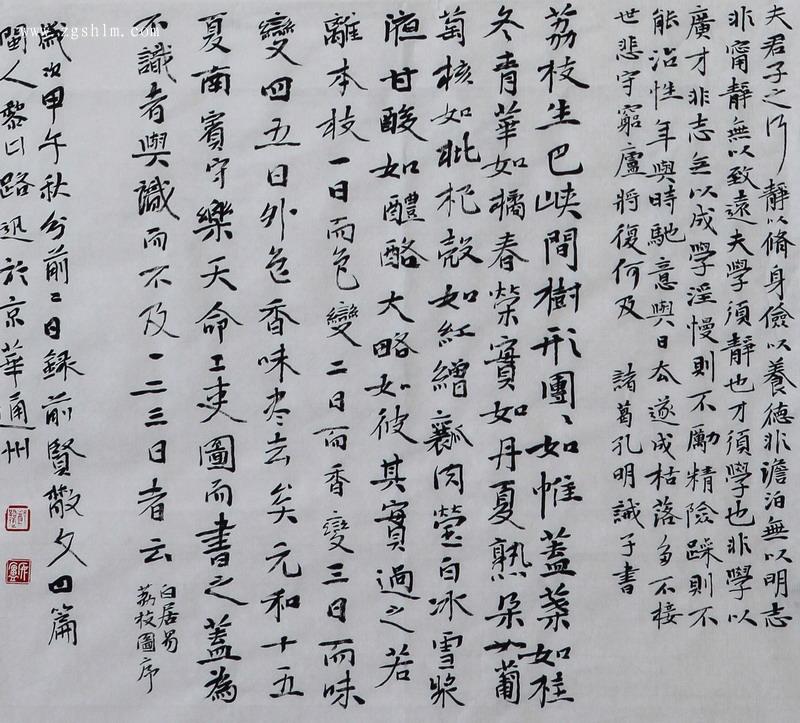 夫君子之行靜以脩身儉以養德非澹泊無以明志
非甯靜無以致遠夫學須靜也才須學也非學以
廣才非志無以成學淫慢則不勵精險躁則不
能治性年與時馳意與日去遂成枯落多不接
世悲守窮廬將復何及 諸葛孔明誡子書
荔枝生巴峽間樹形團〻如帷蓋葉如桂
冬青華如橘春榮實如丹夏熟朵如葡
萄核如枇杷殼如紅繒瓤肉瑩白冰雪漿
液甘酸如醴酪大略如彼其實過之若
離本枝一日而色變二日而香變三日而味
變四五日外色香味盡去矣元和十五
夏南賓守樂天命工吏圖而書之蓋為
不識者與識而不及一二三日者云
白居易
荔枝圖序
歲次甲午秋分前二日錄前賢散文四篇
閩人黎 路迅於京華通州
www.zgshlm.com